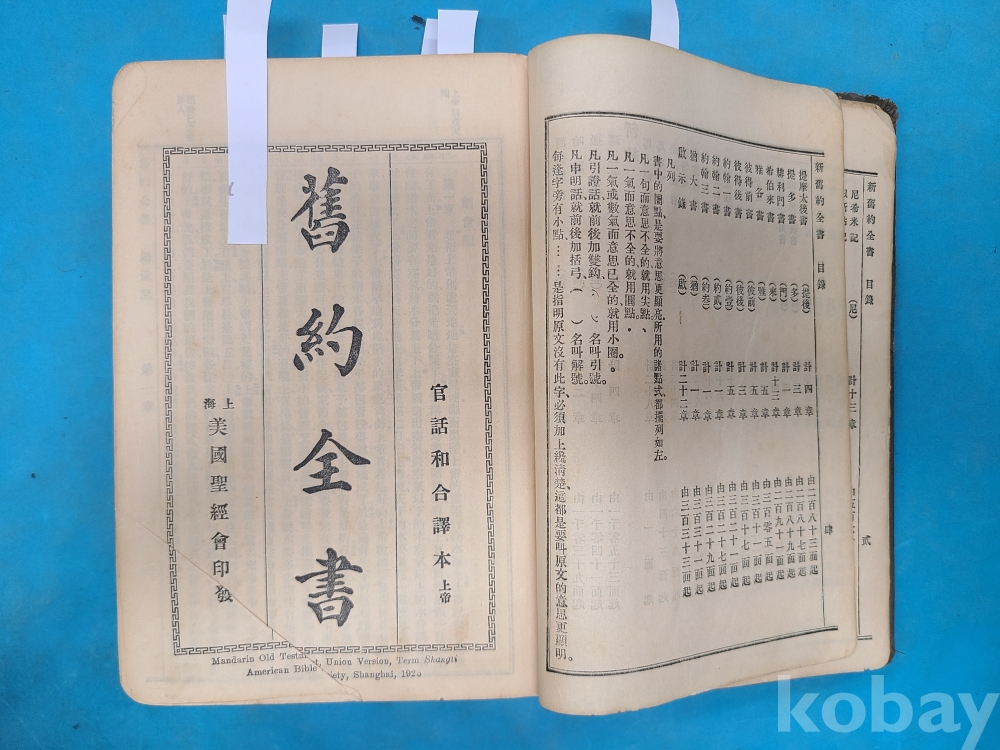 新舊約全書 目錄 貳
尼希米記 (尼) 計十三章
新舊約全書 目錄 肆
提摩太後書 (提後) 計四章 由二百八十三面起
提多書 (多) 計三章 由二百八十七面起
腓利門書 (門) 計一章 由二百八十九面起
希伯來書 (來) 計十三章 由二百九十一面起
雅各書 (雅) 計五章 由三百零五面起
彼得前書 (彼前) 計五章 由三百十一面起
彼得後書 (彼後) 計三章 由三百十七面起
約翰一書 (約壹) 計五章 由三百二十一面起
約翰二書 (約貳) 計一章 由三百二十七面起
約翰三書 (約叁) 計一章 由三百二十九面起
猶大書 (猶) 計一章 由三百三十一面起
啟示錄 (啟) 計二十二章 由三百三十三面起
凡列
書中的圈點是要將意思更顯亮、所用的諸點式、都擺列如左。
凡一句而意思不全的、就用尖點、
凡一氣而意思不全的、就用圓點．
凡一氣或數氣而意思已全的、就用小圈。
凡引證話、就前後加雙鈎、名叫引號。
凡申明話、就前後加括弓、( )名叫解號。
每逢字旁有小點、……是指明原文沒有此字、必須加上纔清楚、這都是要叫原文的意思更顯明。
官話和合譯本 上帝
舊約全書
上海 美國聖經會印發
Mandarin Old Testament, Union Version, Term Shangti
American Bible Society, Shanghai, 192
kobay